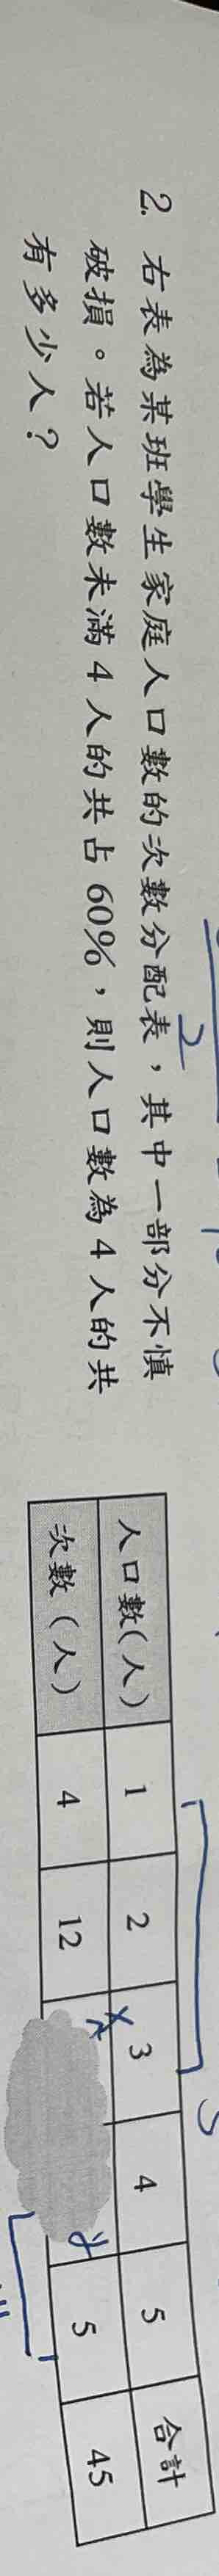 2. 右表為某班學生家庭人口數的次數分配表，其中一部分不慎
破損。若人口數未滿 4 人的共占 60%，則人口數為 4 人的共
有多少人？
人口數(人) 1 2 3 4 5 合計
次數（人） 4 12 x y 5 45